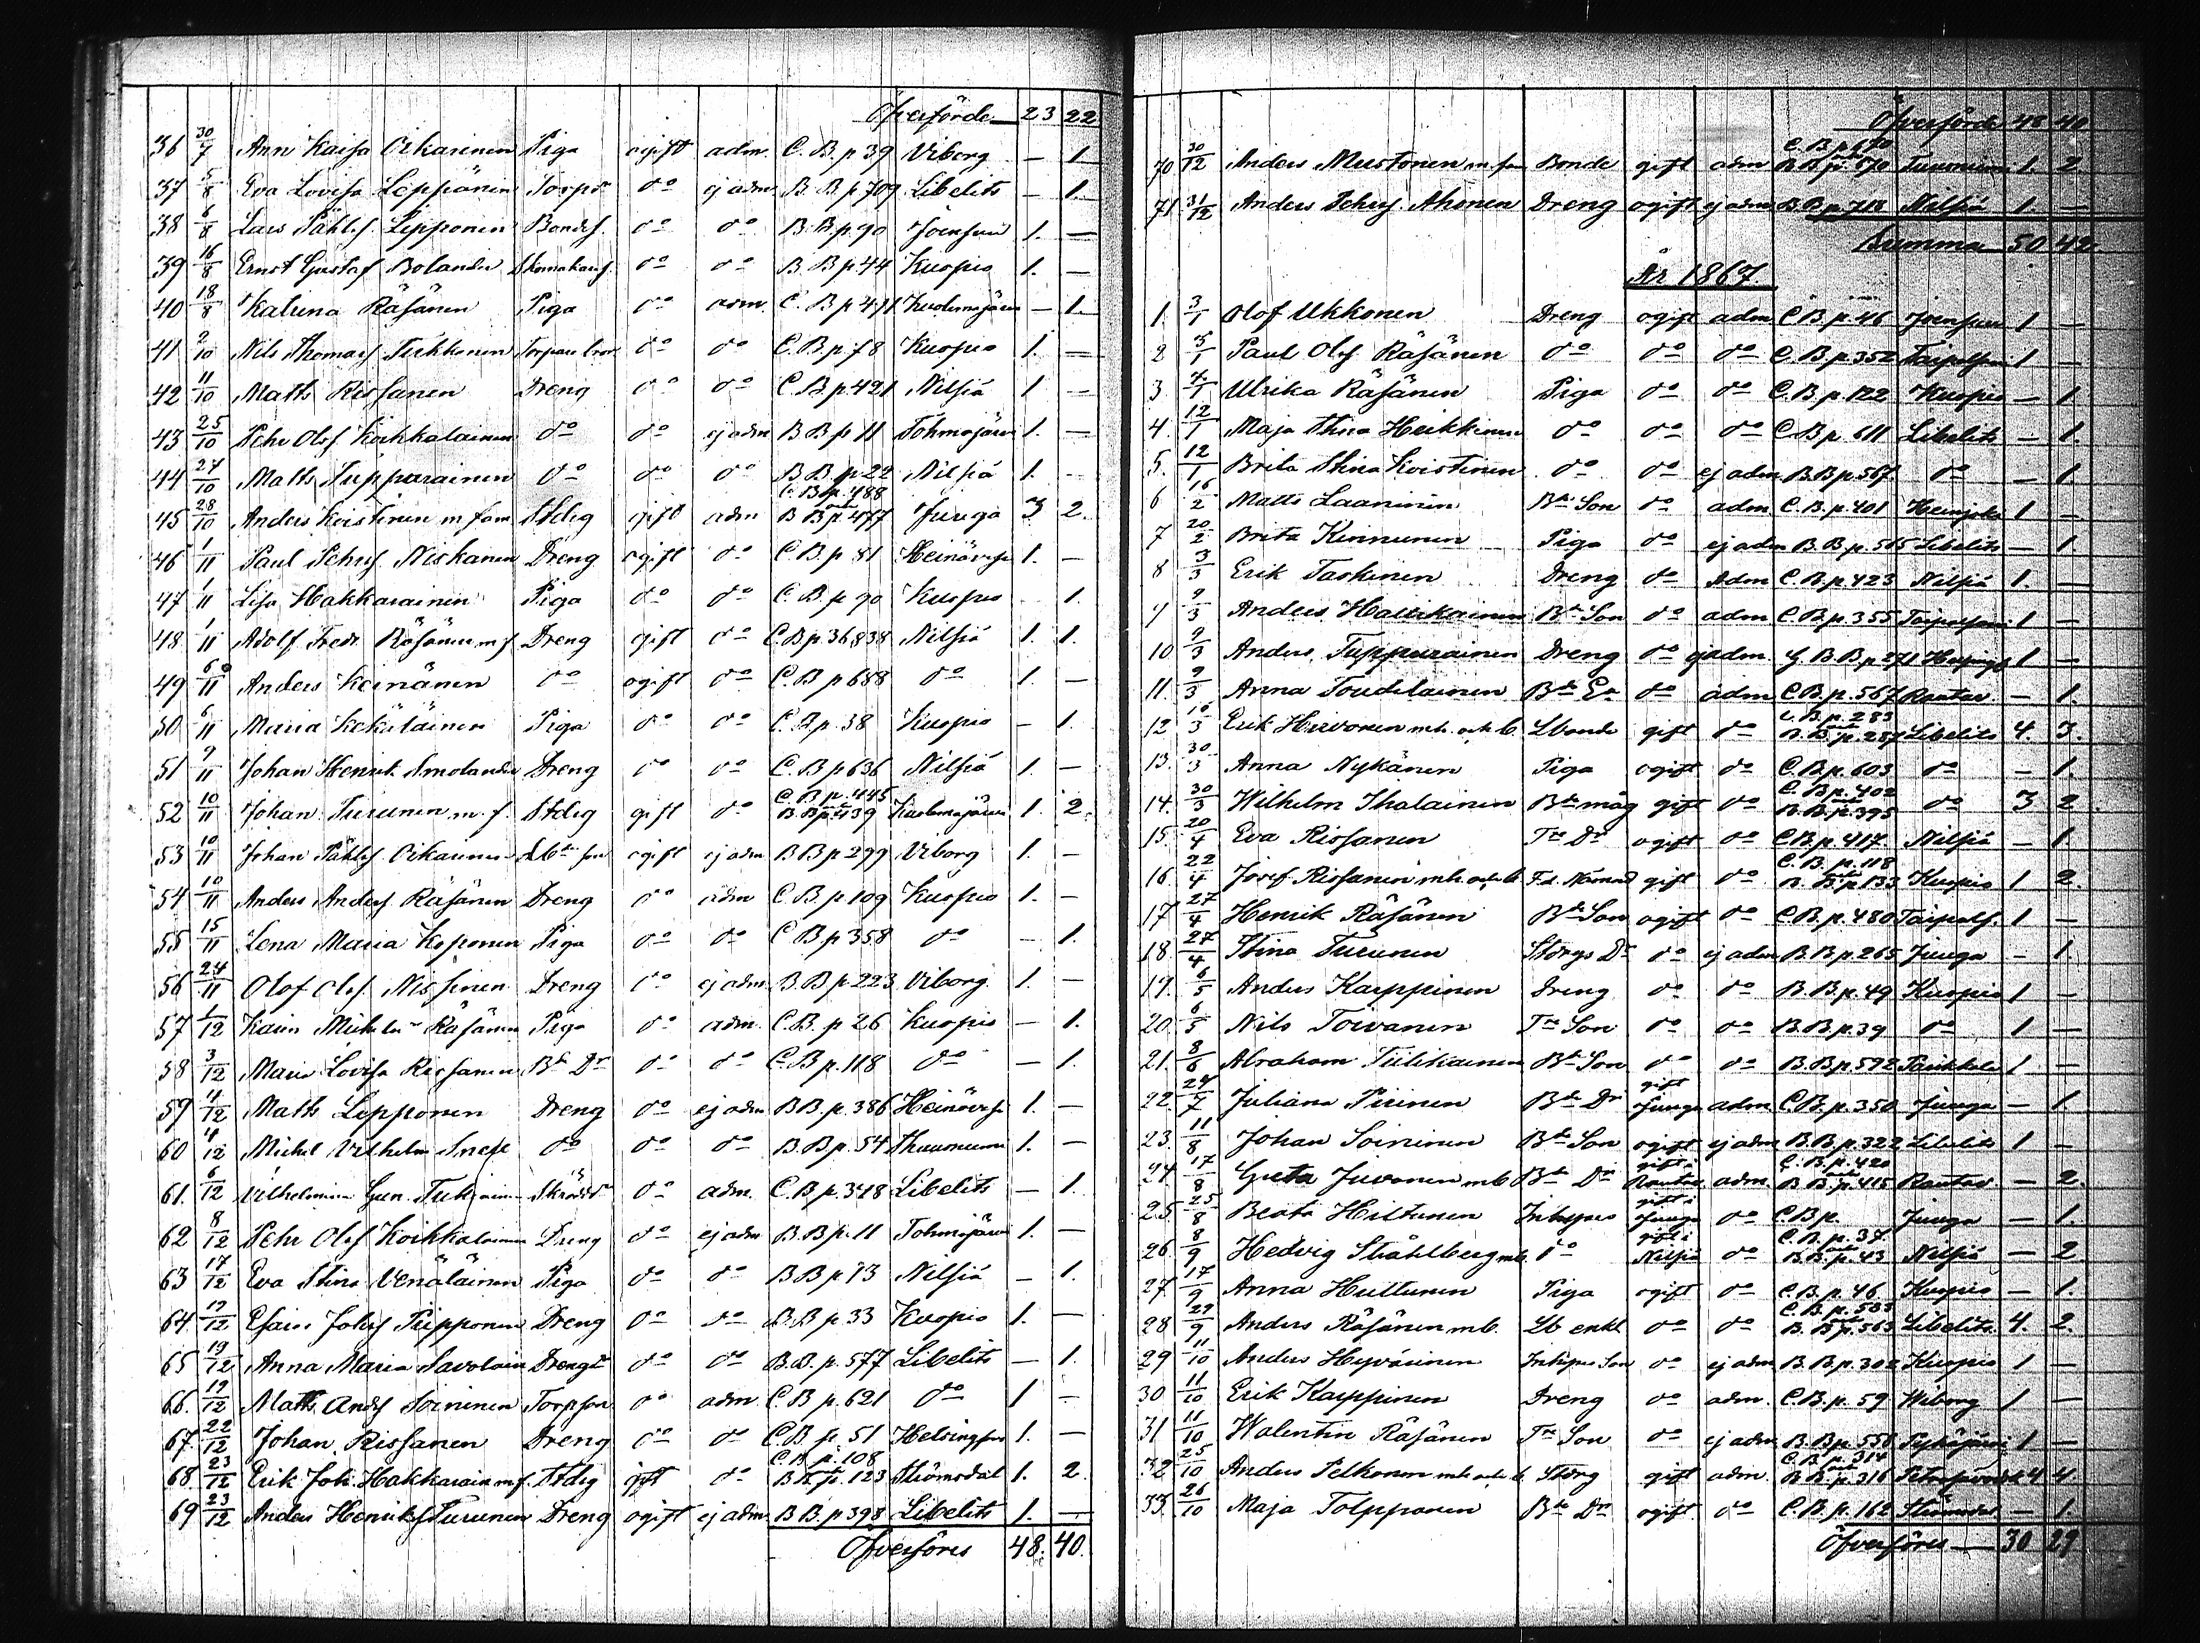 Öfverförde 23 22
36 30/7 Ann Kaisa Oikarinen Piga ogift adm. C. B. p 39 Viborg — 1.
37 5/8 Eva Lovisa Leppänen Torpdr do ej adm B. B p 709 Libelits — 1.
38 6/8 Lars Påhlsf. Lepponen Bondes. do do B. B p. 90 Joensuu 1. —
39 16/8 Ernst Gustaf Bolander do do B. B p. 44 Kuopio 1. —
40 18/8 Katrina Räsänen Piga do adm. C. B p 471 — 1.
41 2/10 Nils Thomasf Tirkkonen do do C. B. p. 78 Kuopio 1. —
42 11/10 Matts Rissanen Dreng do do C. B. p 421 Nilsiä 1 —
43 25/10 Pehr Olof Koikkalainen do do ej adm B B p 11 Tohmajärvi 1. —
44 27/10 Matts Tuppurainen do do do B B p 22 Nilsiä 1. —
C. B. p. 488
45 28/10 Anders Koistinen m. fam Stdig gift adm B B p. 477 Juuga 3 2.
46 1/11 Paul Pehrsf. Niskanen Dreng ogift do C. B. p 81 Heinävesi 1. —
47 1/11 Lisa Hakkarainen Piga do do C. B. p. 90 Kuopio 1.
48 1/11 Adolf Fredr. Räsänen m f Dreng gift do C. B p. 36, 838 Nilsiä 1. 1.
49 6/11 Anders Keinänen do ogift do C. B p 688 do 1. —
50 6/11 Maria Kekäläinen Piga do do C. B p. 38 Kuopio — 1.
51 9/11 Johan Henrik Smolander Dreng do do C. B p 636 Nilsiä 1. —
C. B p. 445
52 10/11 Johan Turunen m. f. Stdig gift do B. B p 439 1. 2.
53 10/11 Johan Påhlsf Oikarinen ogift ej adm B B p 299 Viborg 1. —
54 10/11 Anders Andersf Räsänen Dreng do adm C. B. p 109 Kuopio 1. —
55 15/11 Lena Maria Koponen Piga do do C B p 358 do — 1.
56 24/11 Olof Olsf. Nissinen Dreng do ej adm B. B p 223 Viborg 1. —
57 1/12 Karin Räsänen Piga do adm. C. B. p 26 Kuopio — 1.
58 3/12 Maria Lovisa Rissanen Bde Dr do do C. B p. 118 do — 1.
59 4/12 Matts Lepponen Dreng do ej adm B B. p. 386 Heinävesi 1. —
60 4/12 Michel Vilhelm Snell do do do B. B p. 54 1. —
61. 6/12 Vilhelmina do adm. C. B p. 348 Libelits — 1.
62 8/12 Pehr Olof Koikkalainen Dreng do ej adm B. B p. 11 Tohmajärvi 1. —
63 17/12 Eva Stina Venäläinen Piga do do B B p 73 Nilsiä — 1.
64. 19/12 Esaias Johsf Piipponen Dreng do do B. B p. 33 Kuopio 1. —
65 19/12 Anna Maria Savolain do do B. B. p. 577 Libelits — 1.
66. 19/12 Matts Andsf Soininen Torpson do adm C. B p. 621 do 1 —
67. 22/12 Johan Rissanen Dreng do do C. B p. 51 Helsingfors 1. —
C. B p. 108
68 23/12 Erik Joh. Hakkarain m f. Stdig gift do B. B. p. 123 Strömsdal 1. 2.
69 23/12 Anders Henriksf Turunen Dreng ogift ej adm B B. p 398 Libelits 1. —
Öfverföres 48. 40.
Öfverförde 48 40
C. B p 670
70 30/12 Anders Mustonen m fam Bonde gift adm B B p. 670 1. 2.
71 31/12 Anders Pehrsf. Ahonen Dreng ogift ej adm B. B. p. 718 Nilsiä 1. —
Summa 50. 42.
År 1867.
1. 3/1 Olof Ukkonen Dreng ogift adm C. B. p. 46 Joensuu 1 —
2 3/1 Paul Olsf. Räsänen do do do C. B. p. 352 Taipalsaari 1 —
3 4/1 Ulrika Räsänen Piga do do C. B. p. 122 Kuopio — 1
4. 12/1 Maja Stina Heikkinen do do do C B p. 611 Libelits — 1.
5. 12/1 Brita Stina Koistinen do do ej adm B. B p. 567. do — 1
6 16/2 Matts Laaninen Bde Son do adm C. B. p. 401 1 —
7 20/2 Brita Kinnunen Piga do ej adm B. B p. 505 Libelits — 1
8 3/3 Erik Taskinen Dreng do Adm C. B. p. 423 Nilsiä 1. —
9 9/3 Anders Hallikainen Bde Son do adm C. B p. 355 Taipalsaari 1 —
10. 9/3 Anders Tuppurainen Dreng do ej adm B B p 271 1 —
11. 9/3 Anna Toudilainen Bde do adm C. B p. 567 Rautav — 1.
C. B p. 283
12 16/3 Erik Hirvonen m h. och b. Lbonde gift do B. B. p. 287 Libelits 4. 3.
13. 30/3 Anna Nykänen Piga ogift do C. B p. 603 do — 1.
C. B p. 402
14. 30/3 Wilhelm Ihalainen Bde måg gift do B. B. p. 395 do 3 2
15. 20/4 Eva Rissanen Trs Dr ogift do C B p. 417 Nilsiä — 1
C. B. p. 118
16. 22/4 Josef Rissanen m h. och b Fd Nämnd gift do B. B. p 133 Kuopio 1 2.
17 27/4 Henrik Räsänen Bde Son ogift do C. B p. 480 Taipals. 1 —
18. 27/4 Stina Turunen Storgs Dr do ej adm B. B p. 265 Juuga — 1.
19. 6/5 Anders Karppinen Dreng do do B. B p. 49 Kuopio 1 —
20. 6/5 Nils Toivanen Trs Son do do B. B. p. 39 do 1 —
21. 8/6 Abraham Tiilikainen Bde Son do do B. B p. 592 Parikkala 1. —
gift
22. 24/7 Juliana Piirinen Bde Dr Juuga adm C. B. p. 350 Juuga — 1.
23. 11/8 Johan Soininen Bde Son ogift ej adm B. B. p. 322 Libelits 1 —
gift i C. B. p. 420
24 17/8 Greta Juvonen m b Bde Dr Rautav adm B. B. p. 415 Rautav — 2.
gift i
25. 25/8 Beata Hiltunen Inhyses Juuga do C B p. Juuga — 1.
gift i C. B. p. 37
26. 8/9 Hedvig Ståhlberg m b. do Nilsiä do B. B. p. 43 Nilsiä — 2
27 17/9 Anna Huttunen Piga ogift do C. B. p. 46 Kuopio — 1.
C. B p. 563
28 29/9 Anders Räsänen m b. Lb enkl do do B. B p. 563 Libelits 4. 2.
29 11/10 Anders Hyvärinen Inhyses Son do ej adm B. B p. 302 Kuopio 1 —
30 11/10 Erik Karppinen Dreng do adm. C. B. p. 59 Wiborg 1 —
31 11/10 Walentin Räsänen Trs Son do ej adm B. B p. 558 Pyhäjärvi 1 —
C. B p. 314
32 25/10 Anders Pelkonen m h. och b Störg gift adm. B. B. p. 316 4 4.
33. 26/10 Maja Tolppanen Bde Dr ogift do C. B p. 162 Strömsdal — 1.
Öfverföres 30 29